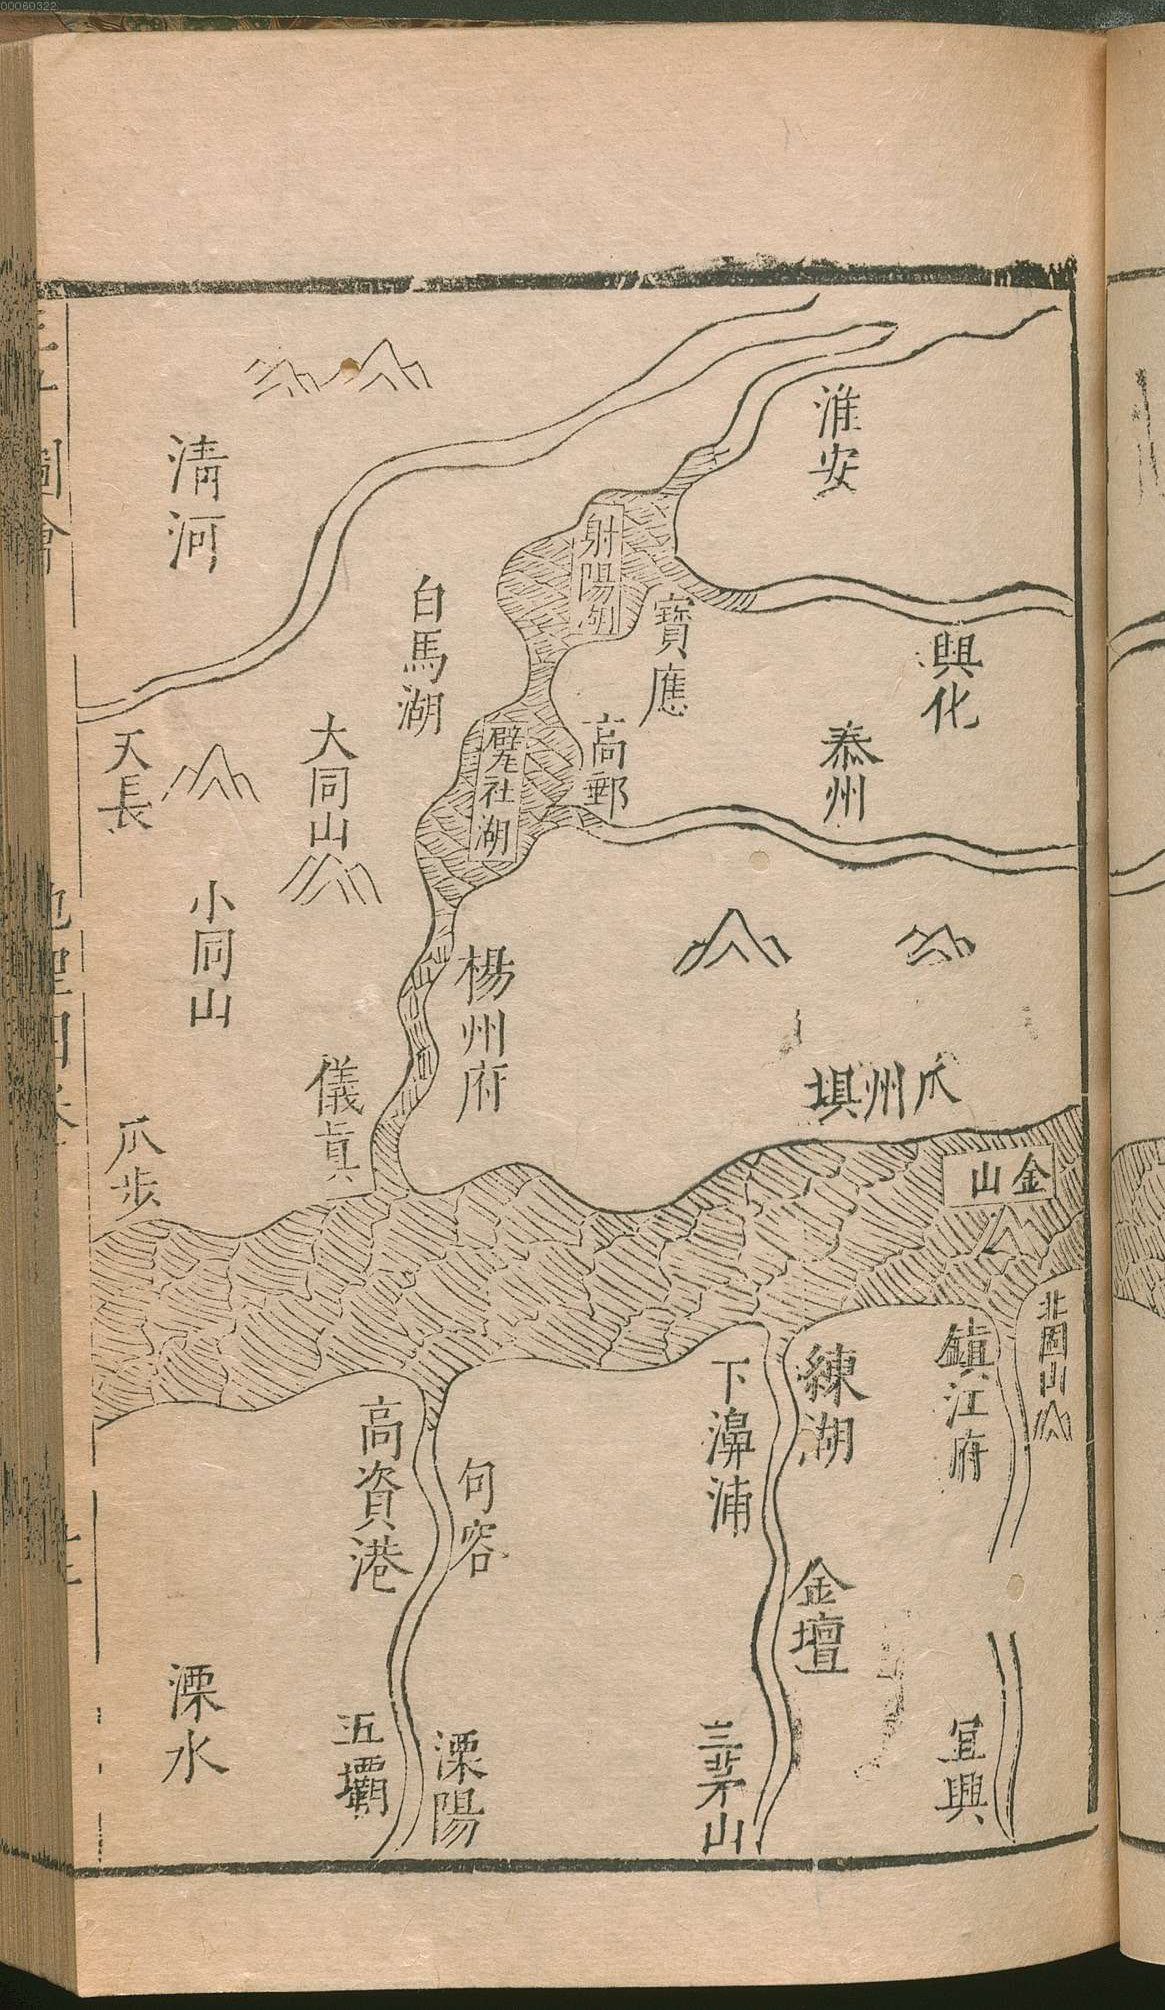 00060322
淮安
興化
泰州
寶應
高郵
射陽湖
甓社湖
白馬湖
清河
大同山
天長
小同山
楊州府
儀真
瓜步
瓜州壩
金山
北固山
鎮江府
練湖
下濞浦
金壇
宜興
三茅山
句容
高資港
溧陽
五壩
溧水